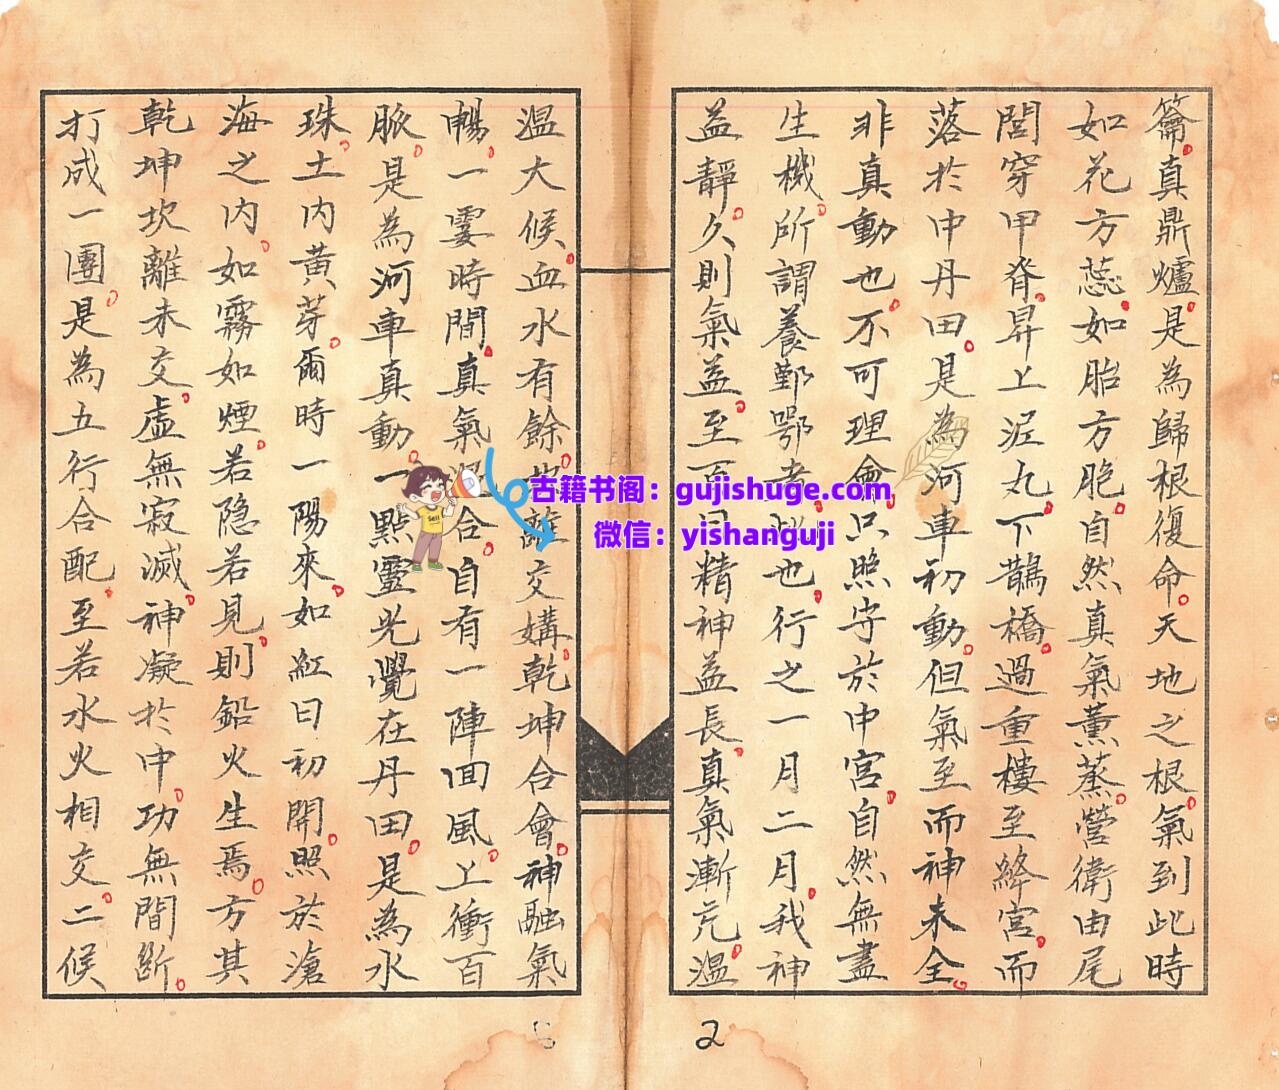 籥真鼎爐是為歸根復命天地之根氣到此時
如花方蕊如胎方胞自然真氣薰蒸營衛由尾
閭穿甲脊昇上泥丸下鵲橋過重樓至絳宮而
落於中丹田是為河車初動但氣至而神未全
非真動也不可理會只照守於中宮自然無盡
生機所謂養鄞鄂者此也行之一月二月我神
益靜久則氣益至百日精神益長真氣漸充溫
溫大候血水有餘坎離交媾乾坤合會神融氣
暢一霎時間真氣混合自有一陣回風上衝百
脈是為河車真動一點靈光覺在丹田是為水
珠土內黃芽爾時一陽來如紅日初開照於滄
海之內如霧如煙若隐若見則鉛火生焉方其
乾坤坎離未交虛無寂滅神凝於中功無間斷
打成一團是為五行合配至若水火相交二候
古籍书阁：gujishuge.com
微信：yishanguji
2